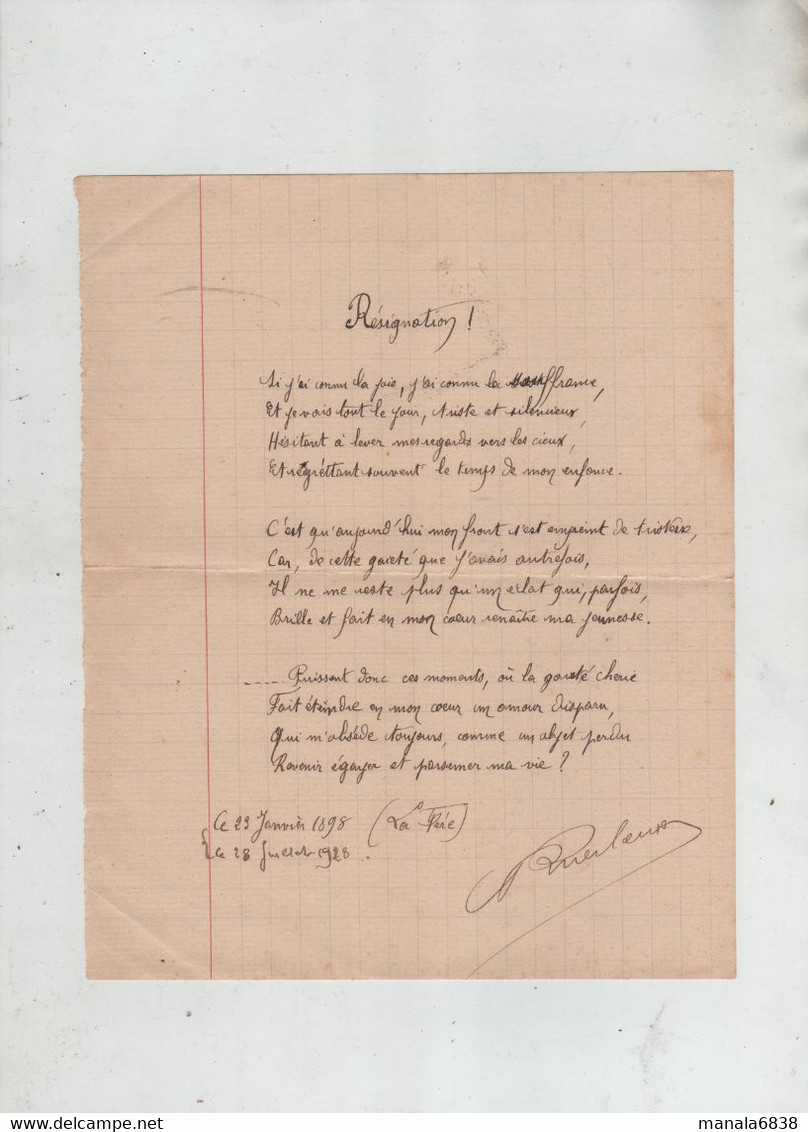 Résignation !
Si j'ai connu la joie, j'ai connu la souffrance,
Et je vais tout le jour, triste et silencieux,
Hésitant à lever mes regards vers les cieux,
Et regrettant souvent le temps de mon enfance.
C'est qu'aujourd'hui mon front s'est empreint de tristesse,
Car, de cette gaieté que j'avais autrefois,
Il ne me reste plus qu'un éclat qui, parfois,
Brille et fait en mon coeur renaître ma jeunesse.
..... Puissent donc ces moments, où la gaieté cherie
Fait éteindre en mon coeur un amour disparu,
Qui m'obsède toujours, comme un objet perdu
Revenir égayer et parsemer ma vie ?
Ce 23 Janvier 1898 (La Fère)
Ce 28 Juillet 1928.
www.delcampe.net
manala6838